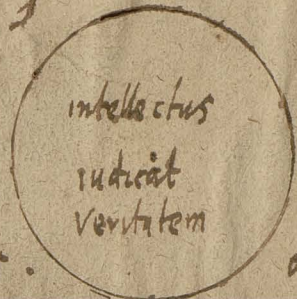 intellectus
iudicat
veritatem